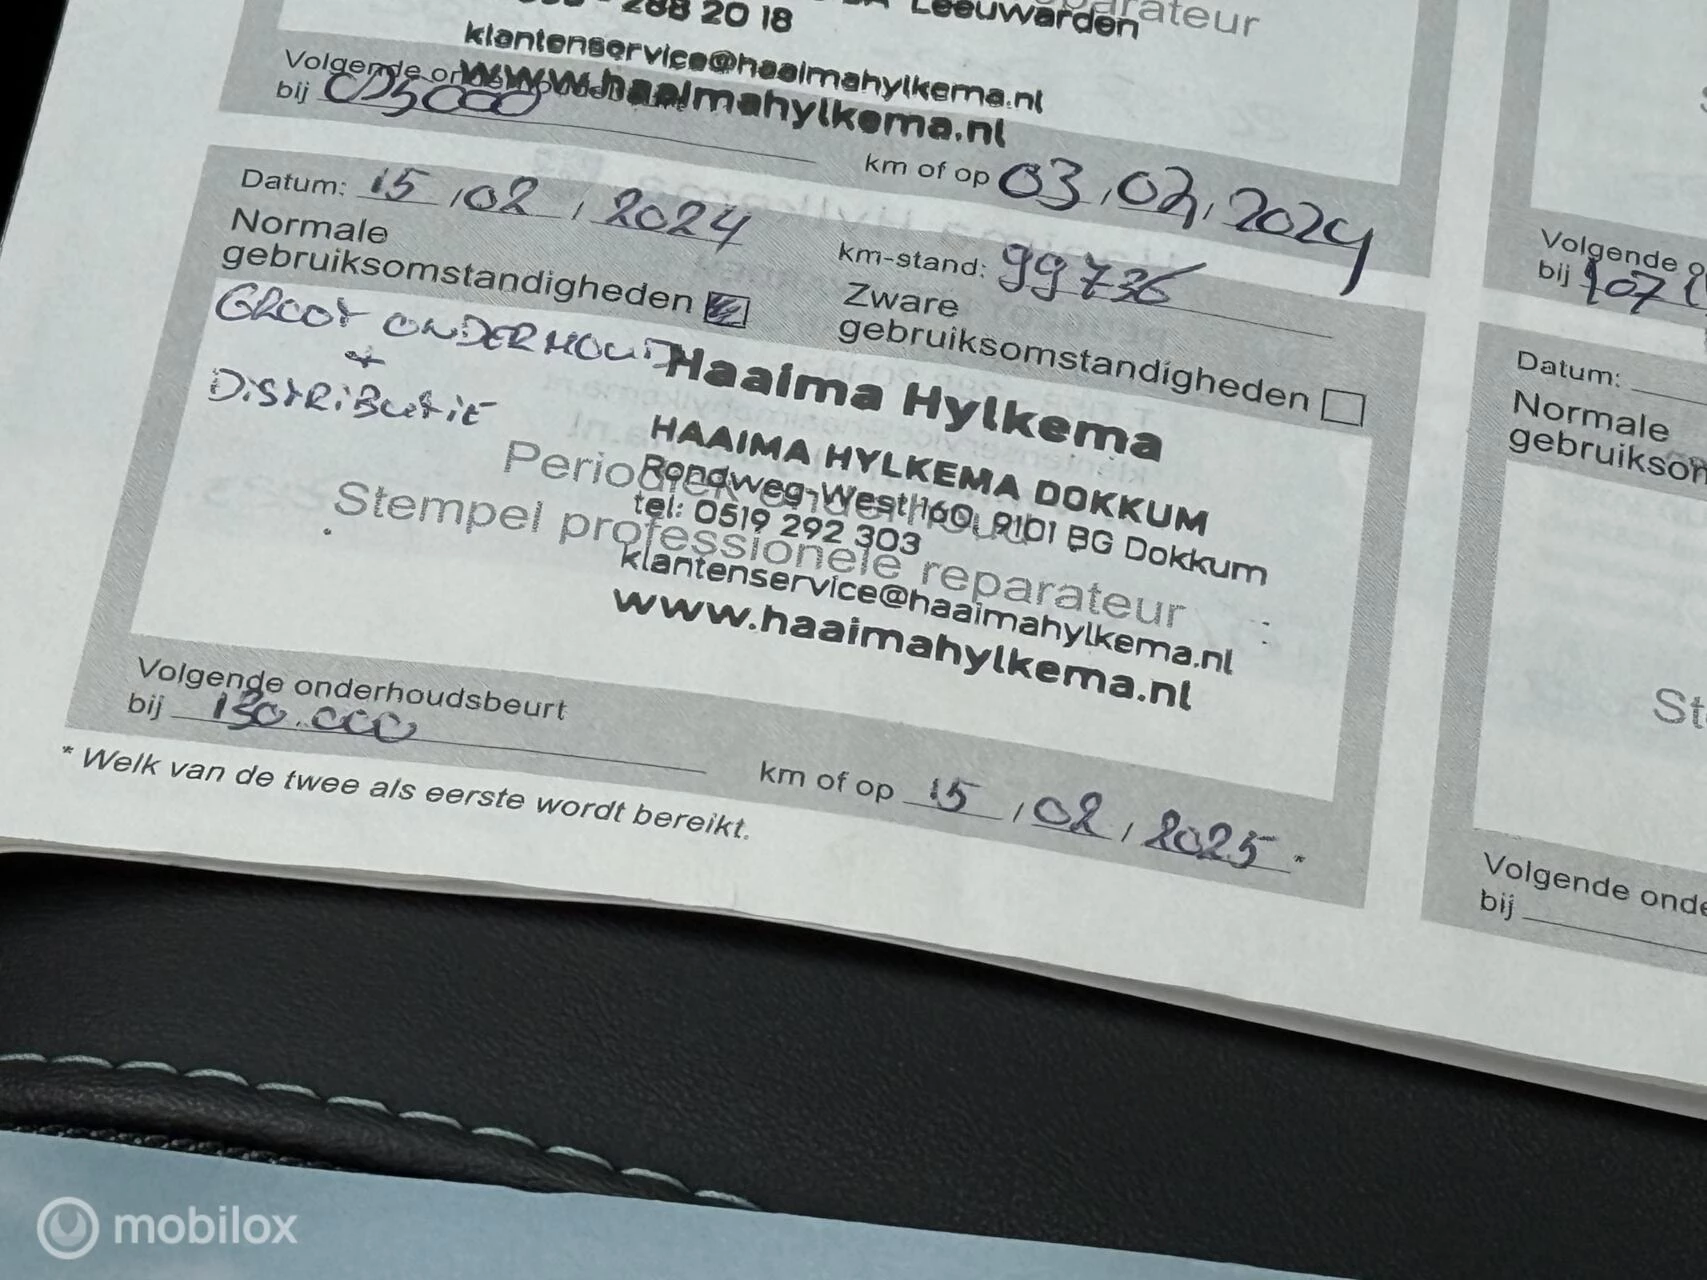 288 20 18
Leeuwarden
klantenservice@haaimahylkema.nl
www.haaimahylkema.nl
Volgende
bij
km of op 03, 02, 2024
Datum: 15 / 02 / 2024
Normale
gebruiksomstandigheden
km-stand: 99736
Zware
gebruiksomstandigheden
GROOT ONDERHOUD
+
DISTRIBUTIE
Haaima Hylkema
HAAIMA HYLKEMA DOKKUM
Rondweg-West 160, 9101 BG Dokkum
tel: 0519 292 303
klantenservice@haaimahylkema.nl
www.haaimahylkema.nl
Periodiek onderhoud
Stempel professionele reparateur
Volgende onderhoudsbeurt
bij 130.000
km of op 15 / 02 / 2025 *
* Welk van de twee als eerste wordt bereikt.
Volgende
bij 107
Datum:
Normale
Volgende
bij
mobilox